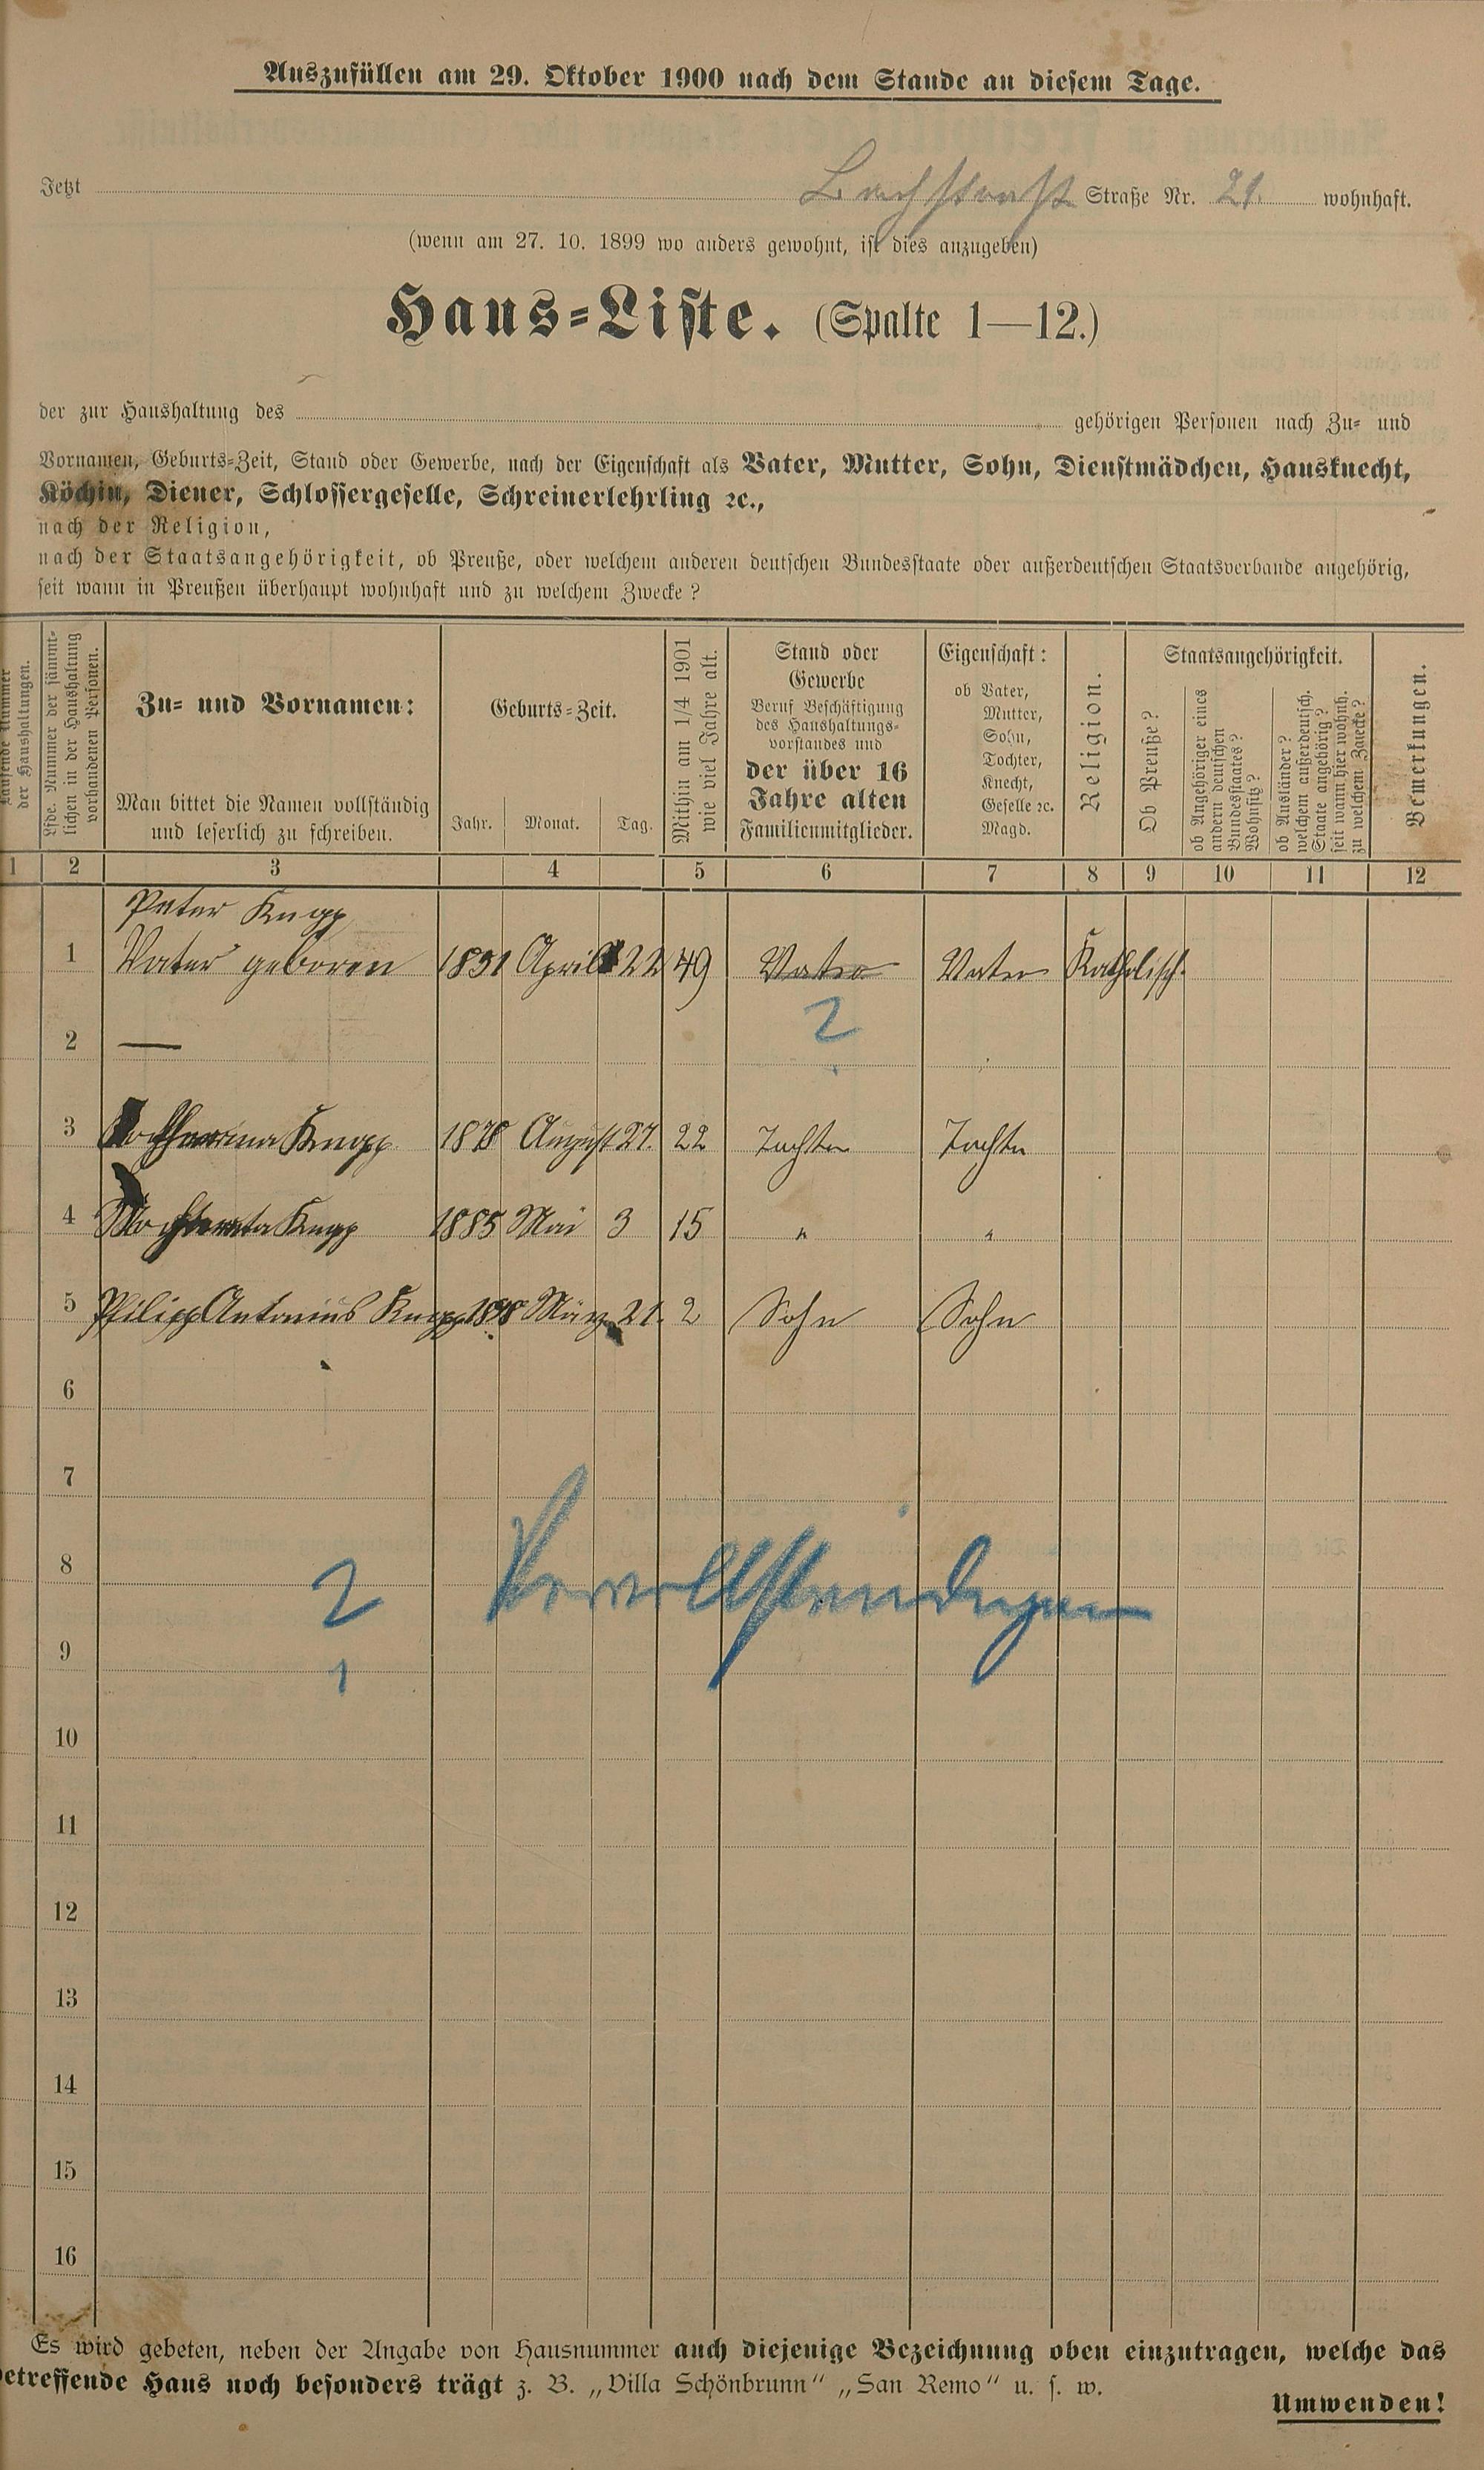 Auszufüllen am 29. Oktober 1900 nach dem Stande an diesem Tage.
Jetzt Bachstraße Straße Nr. 21. wohnhaft.
(wenn am 27. 10. 1899 wo anders gewohnt, ist dies anzugeben)
Haus-Liste. (Spalte 1—12.)
der zur Haushaltung des gehörigen Personen nach Zu- und
Vornamen, Geburts-Zeit, Stand oder Gewerbe, nach der Eigenschaft als Vater, Mutter, Sohn, Dienstmädchen, Hausknecht,
Köchin, Diener, Schlossergeselle, Schreinerlehrling ꝛc.,
nach der Religion,
nach der Staatsangehörigkeit, ob Preuße, oder welchem anderen deutschen Bundesstaate oder außerdeutschen Staatsverbande angehörig,
seit wann in Preußen überhaupt wohnhaft und zu welchem Zwecke?
Laufende Nummer
der Haushaltungen.
Lfde. Nummer der sämmt-
lichen in der Haushaltung
vorhandenen Personen.
Zu- und Vornamen:
Man bittet die Namen vollständig
und leserlich zu schreiben.
Geburts-Zeit.
Jahr. Monat. Tag.
Mithin am 1/4 1901
wie viel Jahre alt.
Stand oder
Gewerbe
Beruf Beschäftigung
des Haushaltungs-
vorstandes und
der über 16
Jahre alten
Familienmitglieder.
Eigenschaft:
ob Vater,
Mutter,
Sohn,
Tochter,
Knecht,
Geselle ꝛc.
Magd.
Religion.
Staatsangehörigkeit.
Ob Preuße?
ob Angehöriger eines
andern deutschen
Bundesstaates?
Wohnsitz?
ob Ausländer?
welchem außerdeutsch.
Staate angehörig?
seit wann hier wohnh.
zu welchem Zwecke?
Bemerkungen.
1 2 3 4 5 6 7 8 9 10 11 12
Peter Knapp
1 Vater geboren 1851 April 22 49 Vater Vater Katholisch
2 — ?
3 Knapp 1878 August 27. 22 Tochter Tochter
4 Knapp 1885 Mai 3 15 " "
5 Philipp Antonius Knapp 1898 März 21. 2 Sohn Sohn
6
7
8 2 Vervollständigen
9 1
10
11
12
13
14
15
16
Es wird gebeten, neben der Angabe von Hausnummer auch diejenige Bezeichnung oben einzutragen, welche das
betreffende Haus noch besonders trägt z. B. „Villa Schönbrunn" „San Remo" u. s. w.
Umwenden!